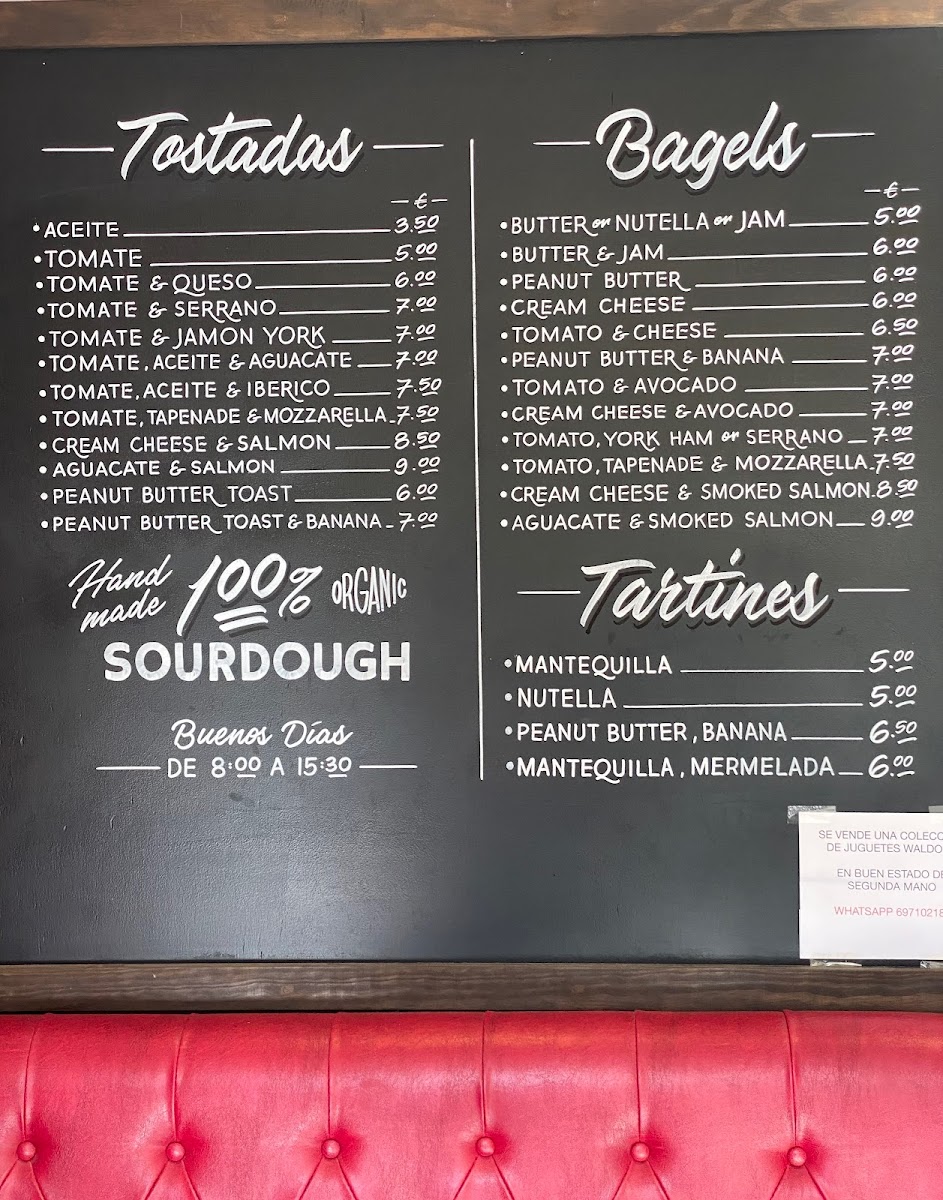 Tostadas
€
• ACEITE 3.50
• TOMATE 5.00
• TOMATE & QUESO 6.00
• TOMATE & SERRANO 7.00
• TOMATE & JAMON YORK 7.00
• TOMATE, ACEITE & AGUACATE 7.00
• TOMATE, ACEITE & IBERICO 7.50
• TOMATE, TAPENADE & MOZZARELLA 7.50
• CREAM CHEESE & SALMON 8.50
• AGUACATE & SALMON 9.00
• PEANUT BUTTER TOAST 6.00
• PEANUT BUTTER TOAST & BANANA 7.00
Hand made 100% ORGANIC
SOURDOUGH
Buenos Días
DE 8:00 A 15:30
Bagels
€
• BUTTER or NUTELLA or JAM 5.00
• BUTTER & JAM 6.00
• PEANUT BUTTER 6.00
• CREAM CHEESE 6.00
• TOMATO & CHEESE 6.50
• PEANUT BUTTER & BANANA 7.00
• TOMATO & AVOCADO 7.00
• CREAM CHEESE & AVOCADO 7.00
• TOMATO, YORK HAM or SERRANO 7.00
• TOMATO, TAPENADE & MOZZARELLA 7.50
• CREAM CHEESE & SMOKED SALMON 8.50
• AGUACATE & SMOKED SALMON 9.00
Tartines
• MANTEQUILLA 5.00
• NUTELLA 5.00
• PEANUT BUTTER, BANANA 6.50
• MANTEQUILLA, MERMELADA 6.00
SE VENDE UNA COLECC
DE JUGUETES WALDO
EN BUEN ESTADO DE
SEGUNDA MANO
WHATSAPP 69710218